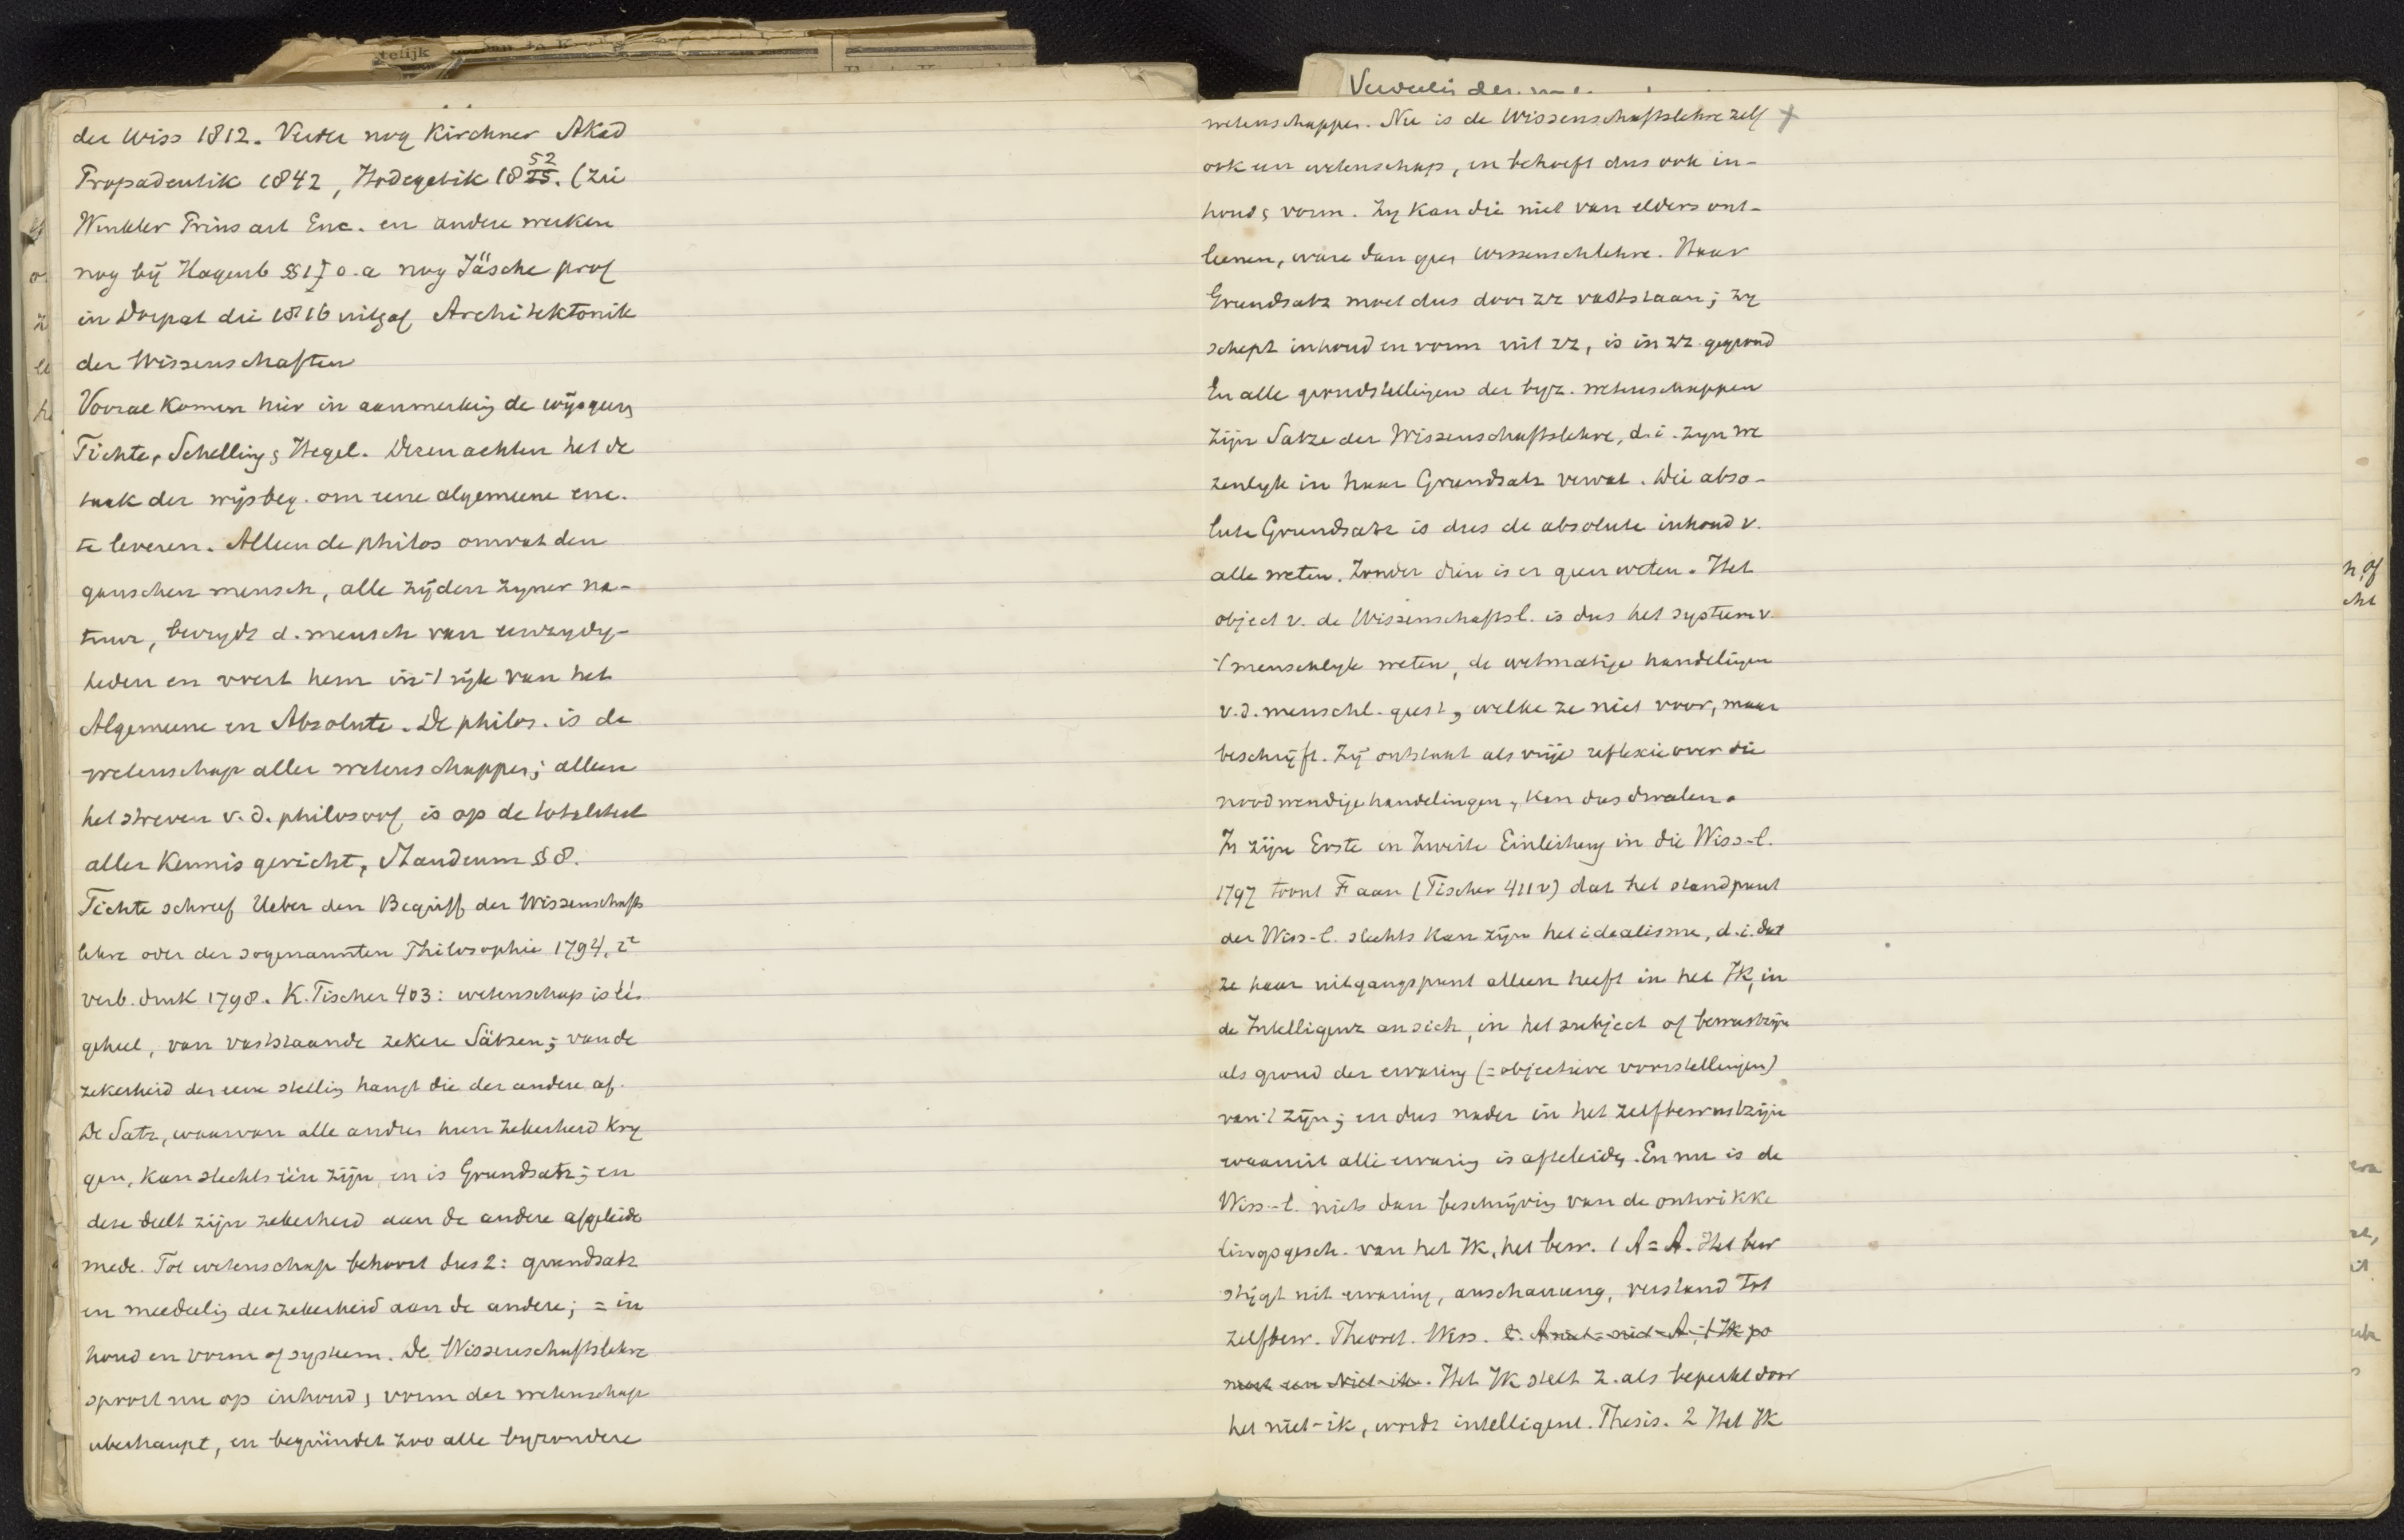 der Wiss 1812. Verder nog Kirchner Akad
Propädeutik 1842, Hodegetik 1852. (zie
Winkler Prins art Enc. en andere werken
nog bij Hagenb §§ 1) o.a nog Jäsche prof
in Dorpat die 1816 uitgaf Architektonik
der Wissenschaften
Vooral komen hier in aanmerking de wijsgeeren
Fichte, Schelling & Hegel. Dezen achten het de
taak der wijsbeg. om eene algemeene enc.
te leveren. Alleen de philos omvat den
ganschen mensch, alle zijden zyner na-
tuur, bevrydt d. mensch van eenzydig-
heden en voert hem in 't rijk van het
Algemeene en Absolute. De philos. is de
wetenschap aller wetenschappen; alleen
het streven v.d. philosoof is op de totaliteit
aller kennis gericht, Staudenm § 8.
Fichte schreef Ueber den Begriff der Wissenschafts
lehre oder der sogenannten Philosophie 1794, 2e
verb. druk 1798. K. Fischer 403: wetenschap is één
geheel, van vaststaande zekere Sätzen; van de
zekerheid der eene stelling hangt die der andere af.
De Satz, waarvan alle andere hun zekerheid kry
gen, kan slechts één zijn, en is Grundsatz; en
deze deelt zijn zekerheid aan de andere afgeleide
mede. Tot wetenschap behoort dus 2: grundsatz
en meedeeling der zekerheid aan de andere; = in
houd en vorm of systeem. De Wissenschaftslehre
spoort nu op inhoud & vorm der wetenschap
uberhaupt, en begründet zoo alle byzondere
wetenschappen. Nu is de Wissenschaftslehre zelf +
ook een wetenschap, en behoeft dus ook in-
houd & vorm. Zy kan die niet van elders ont-
leenen, ware dan geen Wissenschlehre. Haar
Grundsatz moet dus door zz vaststaan; zy
schept inhoud en vorm uit zz, is in zz. gegrond
En alle grondstellingen der byz. wetenschappen
zijn Sätze der Wissenschaftslehre, d.i. zyn we
zenlyk in haar Grundsatz vervat. Die abso-
lute Grundsatz is dus de absolute inhoud v.
alle weten. Zonder dien is er geen weten. Het
object v. de Wissenschaftsl. is dus het systeem v.
't menschelyk weten, de wetmatige handelingen
v.d. menschl. geest, welke ze niet voor, maar
beschrijft. Zij ontstaat als vrije reflexie over die
noodwendige handelingen, kan dus dwalen.
In zijn Erste en Zweite Einleitung in die Wiss-l.
1797 toont F aan (Fischer 411v) dat het standpunt
der Wiss-l. slechts kan zijn het idealisme, d.i. dat
ze haar uitgangspunt alleen heeft in het Ik, in
de Intelligenz an sich, in het subject of bewustzijn
als grond der ervaring (=objectieve voorstellingen)
van 't zijn; en dus nader in het zelfbewustzijn
waaruit alle ervaring is afteleiden. En nu is de
Wiss-l. niets dan beschrijving van de ontwikke
lingsgesch. van het Ik, het bew. 1 A = A. Het bew
stijgt uit ervaring, anschauung, verstand tot
zelfbew. Theoret. Wiss. l. A niet = niet-A; 't Ik po
neert een Niet-ik. Het Ik stelt z. als beperkt door
het niet-ik, wordt intelligent. Thesis. 2 Het Ik